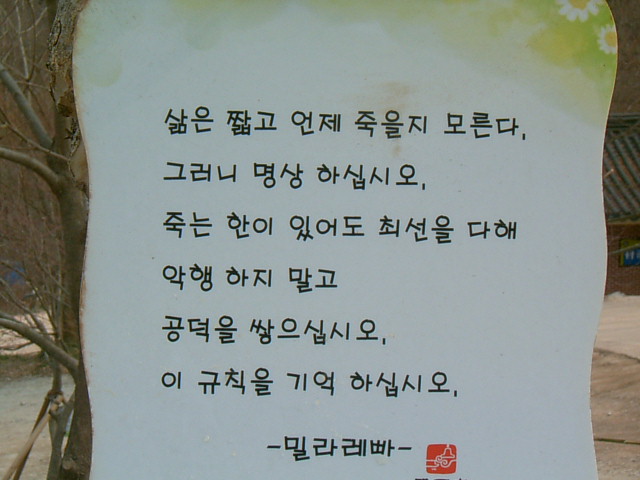 삶은 짧고 언제 죽을지 모른다.
그러니 명상 하십시오.
죽는 한이 있어도 최선을 다해
악행 하지 말고
공덕을 쌓으십시오.
이 규칙을 기억 하십시오.
-밀라레빠-